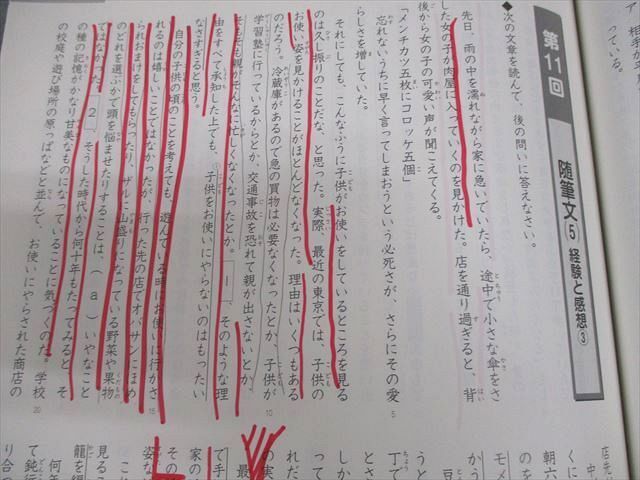 第11回
随筆文⑤ 経験と感想③
◆次の文章を読んで、後の問いに答えなさい。
先日、雨の中を濡れながら家に急いでいたら、途中で小さな傘をさ
した女の子が肉屋に入っていくのを見かけた。店を通り過ぎると、背
後から女の子の可愛い声が聞こえてくる。
「メンチカツ五枚にコロッケ五個」
忘れないうちに早く言ってしまおうという必死さが、さらにその愛
らしさを増していた。
それにしても、こんなふうに子供がお使いをしているところを見る
のは久し振りのことだな、と思った。実際、最近の東京では、子供の
お使い姿を見かけることがほとんどなくなった。理由はいくつもある
のだろう。冷蔵庫があるので急の買物は必要なくなったとか、子供が
学習塾に行っているからとか、交通事故を恐れて親が出さないとか、
そもそも親がそんなに忙しくなくなったとか。 1 、そのような理
由をすべて承知した上でも、①子供をお使いにやらないのはもったい
なさすぎると思う。
自分の子供の頃のことを考えても、遊んでいる時にお使いに行かさ
れるのは嬉しいことではなかったが、行った先の店でオバサンにほめ
られおまけをしてもらったり、ザルに山盛りになっている野菜や果物
のどれを選ぶかで頭を悩ませたりすることは、（ a ）いやなこと
ではなかった。 2 、そうした時代から何十年もたってみると、そ
の種の記憶がかなり甘美なものになっていることに気づくのだ。学校
の校庭や遊び場所の原っぱなどと並んで、お使いにやらされた商店の